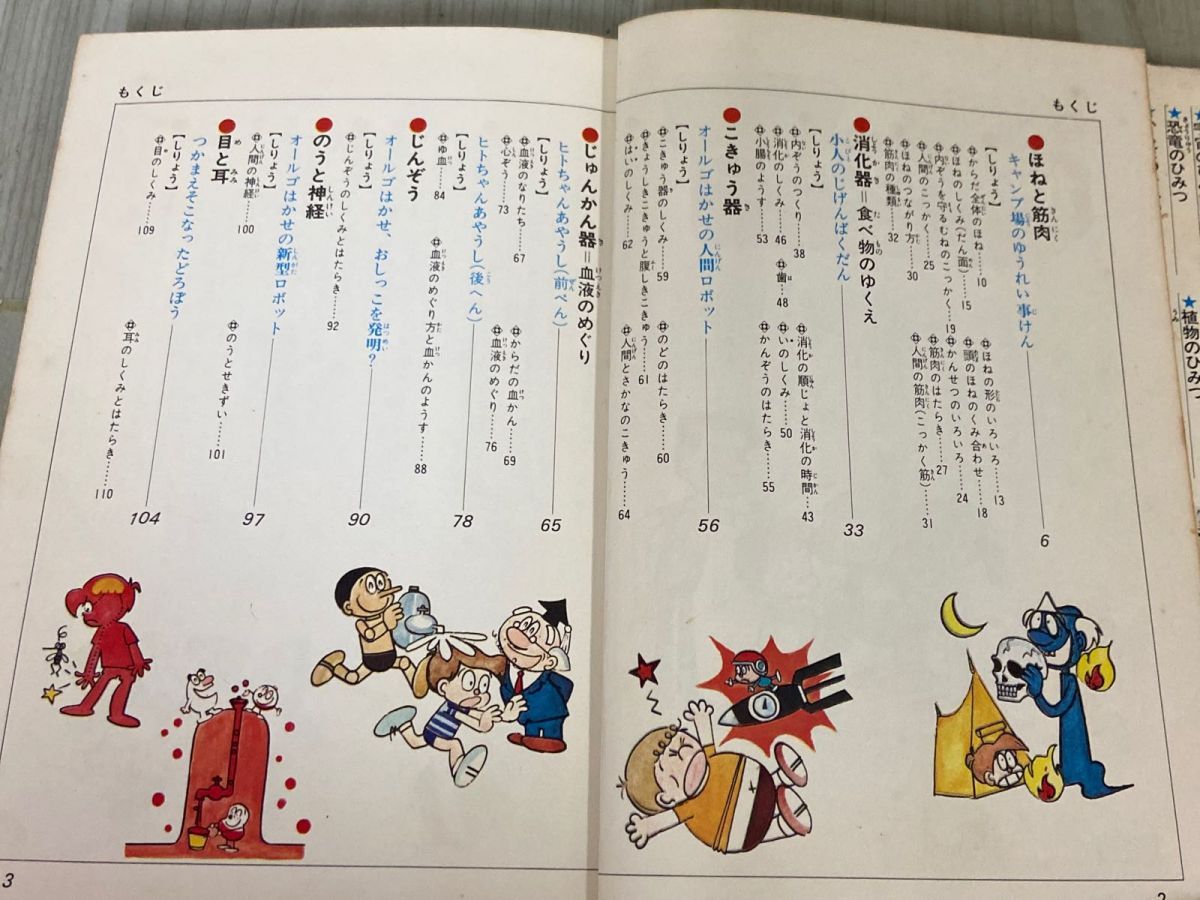 もくじ
●ほねと筋肉
キャンプ場のゆうれい事けん……6
【しりょう】
からだ全体のほね……10
ほねの形のいろいろ……13
ほねのしくみ(だん面)……15
頭のほねのくみ合わせ……18
内ぞうを守るむねのこっかく……19
かんせつのいろいろ……24
人間のこっかく……25
筋肉のはたらき……27
ほねのつながり方……30
人間の筋肉(こっかく筋)……31
筋肉の種類……32
●消化器=食べ物のゆくえ
小人のじげんばくだん……33
【しりょう】
内ぞうのつくり……38
消化の順じょと消化の時間……43
消化のしくみ……46
歯……48
いのしくみ……50
小腸のようす……53
かんぞうのはたらき……55
●こきゅう器
オールゴはかせの人間ロボット……56
【しりょう】
こきゅう器のしくみ……59
のどのはたらき……60
きょうしきこきゅうと腹しきこきゅう……61
はいのしくみ……62
人間とさかなのこきゅう……64
もくじ
●じゅんかん器=血液のめぐり
ヒトちゃんあやうし(前ぺん)……65
【しりょう】
血液のなりたち……67
からだの血かん……69
心ぞう……73
血液のめぐり……76
ヒトちゃんあやうし(後へん)……78
【しりょう】
ゆ血……84
血液のめぐり方と血かんのようす……88
●じんぞう
オールゴはかせ、おしっこを発明?……90
【しりょう】
じんぞうのしくみとはたらき……92
●のうと神経
オールゴはかせの新型ロボット……97
【しりょう】
人間の神経……100
のうとせきずい……101
●目と耳
つかまえそこなったどろぼう……104
【しりょう】
目のしくみ……109
耳のしくみとはたらき……110
3
2
★恐竜のひみつ
★植物のひみつ